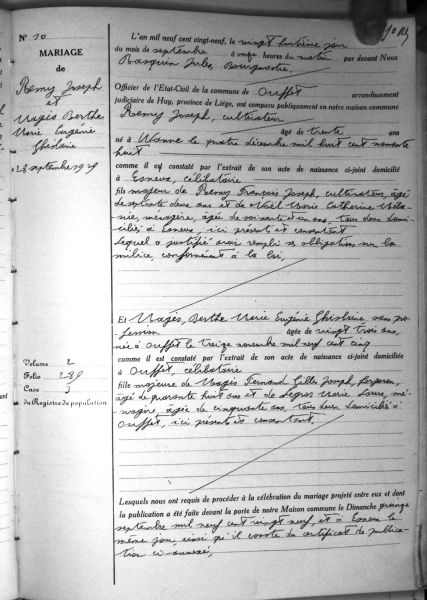 N° 20
MARIAGE
de
Remy Joseph
et
Magis Berthe
Marie Eugénie
Ghislaine
28 septembre 1929
Volume 2
Folio 281
Case 3
du Registre de population
L'an mil neuf cent vingt-neuf, le vingt huitième jour
du mois de septembre à onze heures du matin par devant Nous
Basquin Jules, Bourgmestre,
Officier de l'Etat-Civil de la commune de Ouffet arrondissement
judiciaire de Huy, province de Liége, ont comparu publiquement en notre maison commune
Remy Joseph, cultivateur
âgé de trente ans
né à Wanne le quatre décembre mil huit cent nonante
huit
comme il est constaté par l'extrait de son acte de naissance ci-joint domicilié
à Esneux, célibataire
fils majeur de Remy François Joseph, cultivateur, âgé
de septante deux ans et de Noël Marie Catherine Méla-
nie, ménagère, âgée de soixante et un ans, tous deux domi-
ciliés à Esneux, ici présents et consentant
Lequel a justifié avoir rempli ses obligations sur la
milice, conformément à la loi,
Et Magis, Berthe Marie Eugénie Ghislaine sans pro-
fession âgée de vingt trois ans,
née à Ouffet le treize novembre mil neuf cent cinq
comme il est constaté par l'extrait de son acte de naissance ci-joint domiciliée
à Ouffet, célibataire
fille majeure de Magis Fernand Gilles Joseph, forgeron,
âgé de quarante huit ans et de Legros Marie Laure, mé-
nagère, âgée de cinquante ans, tous deux domiciliés à
Ouffet, ici présents et consentant,
Lesquels nous ont requis de procéder à la célébration du mariage projeté entre eux et dont
la publication a été faite devant la porte de notre Maison commune le Dimanche quinze
septembre mil neuf cent vingt neuf, et à Esneux le
même jour, ainsi qu'il conste du certificat de publica-
tion ci-annexé,